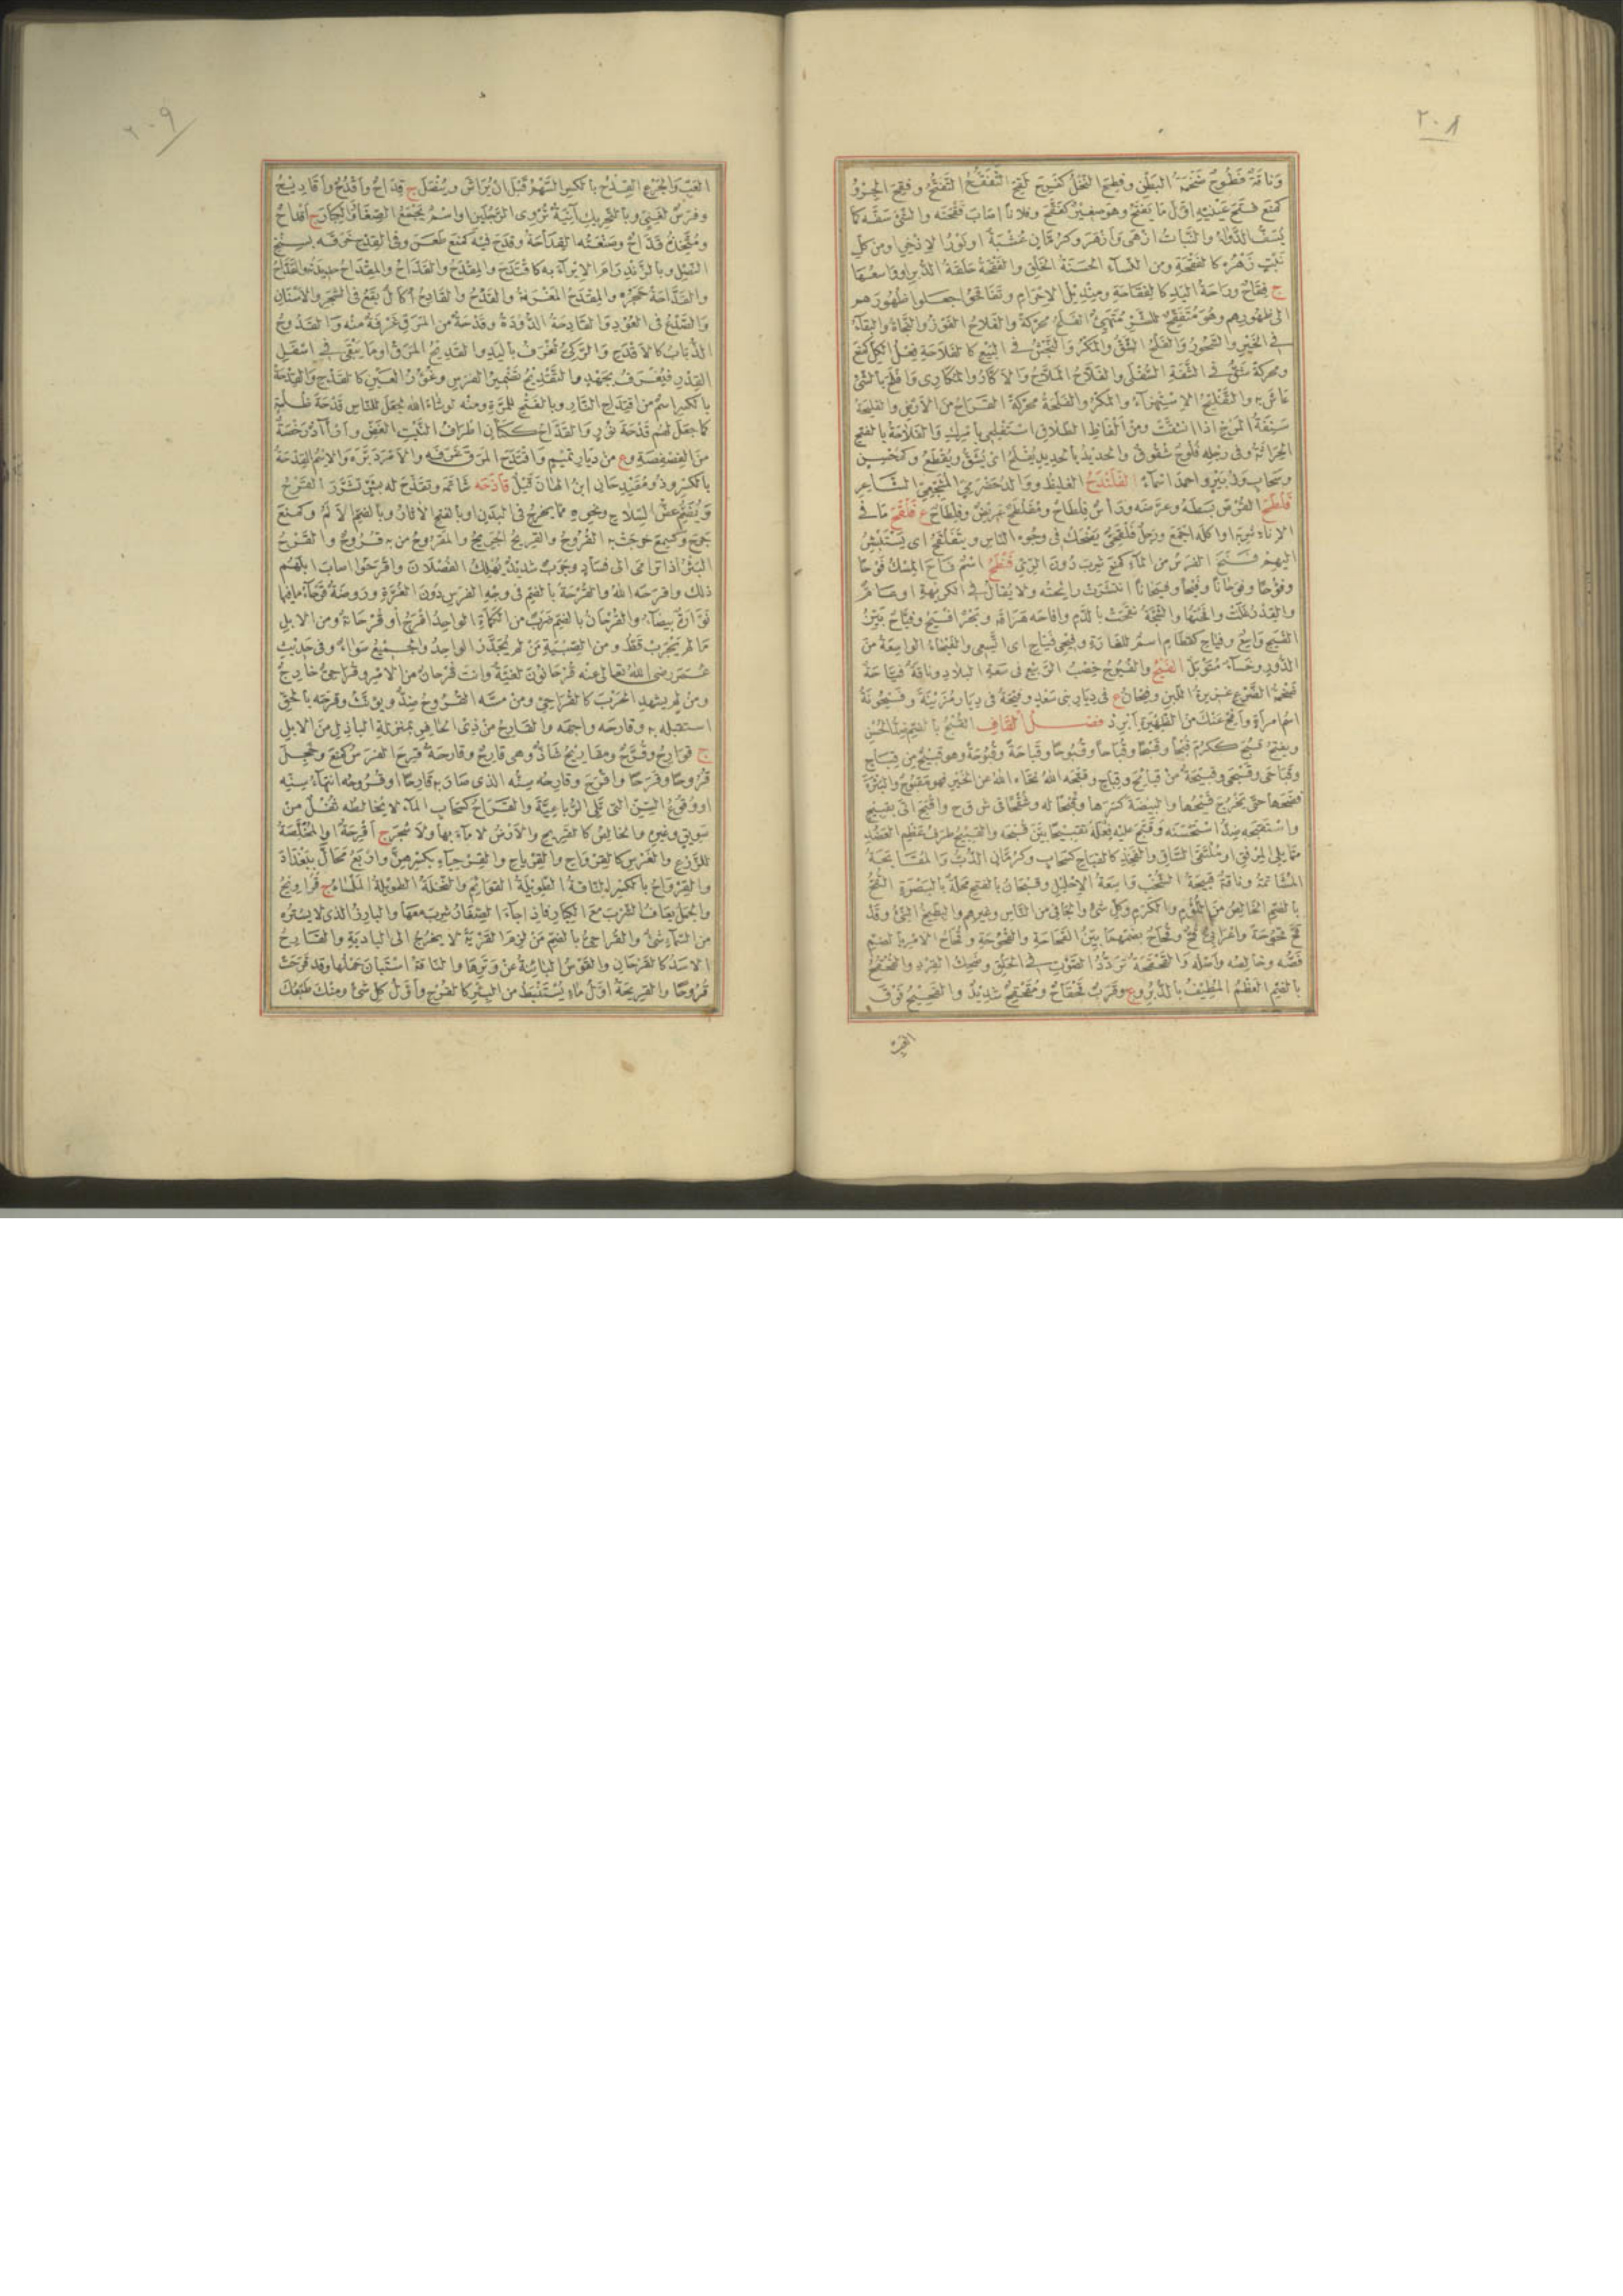 ٢٠٨
وناقة فطوح ضخمة البطن وفطح النخل كفرح لقح التفقح التفتح وفقح الجرو
كمنع فتح عينيه اول ما يفتح وهو صغير كفقح وفلانا اصاب فقحته والشئ سفه كما
يسف الدواء والنبات ازهى وازهر وكرمان عشبة او نور الاذخر او من كل
نبت زهره كالفقحة ومن النساء الحسنة الخلق والفقحة حلقة الدبر او واسعها
ج فقاح وراحة اليد كالفقاحة ومنديل الاحرام وتفاقحوا جعلوا ظهورهم
الى ظهورهم وهو متفقح للشر متهيئ الفلح محركة والفلاح الفوز والنجاة والبقاء
في الخير والسحور والفلح الشق والمكر والنجش في البيع كالفلاحة فعل الكل كمنع
ومحركة شق في الشفة السفلى والفلاح الملاح والاكار والمكارى وافلح بالشئ
عاش به والتفليح الاستهزاء والمكر والفلحة محركة القراح من الارض والفليحة
سنفة المرخ اذا انشقت ومن الفاظ الطلاق استفلحي بامرك والفلاحة بالفتح
الحراثة وفي رجله فلوح شقوق والحديد بالحديد يفلح اى يشق ويقطع وكمحسن
وسحاب وزبير واحمد اسماء الفلندح الغليظ ووالد حضرمي المشجعي الشاعر
فلطح القرص بسطه وعرضه وراس فلطاح ومفلطح عريض وفلطاح ع فلقح ما في
الاناء شربه او اكله اجمع ورجل فلقحى يضحك في وجوه الناس ويتفلقح اى يستبشر
اليهم فنح الفرس من الماء كمنع شرب دون الرى فنطح اسم فاح المسك فوحا
وفؤوحا وفوحانا وفيحا وفيحانا انتشرت رائحته ولا يقال في الكريهة او عام
والقدر غلت وافحتها والشجة نفحت بالدم وافاحه هراقه وبحر افيح وفياح بين
الفيح واسع وفياح كقطام اسم للغارة وفيحى فياح اى اتسعي والفيحاء الواسعة من
الدور وحساء متوبل الفيح والفيوح خصب الربيع في سعة البلاد وناقة فياحة
ضخمة الضرع غزيرة اللبن وفيحان ع في ديار بني سعد وفيحة في ديار مزينة وفيحونة
اسم امراة وافح عنك من الظهيرة ابرد فصل القاف القبح بالضم ضد الحسن
ويفتح قبح ككرم قبحا وقبحا وقباحا وقبوحا وقباحة وقبوحة وهو قبيح من قباح
وقباحى وقبحى وقبيحة من قبائح وقباح وقبحه الله نحاه الله عن الخير فهو مقبوح والبثرة
فضخها حتى يخرج قيحها والبيضة كسرها وقبحا له وشقحا في ش ق ح واقبح اتى بقبيح
واستقبحه ضد استحسنه وقبح عليه فعله تقبيحا بين قبحه والقبيح طرف عظم العضد
مما يلى المرفق او ملتقى الساق والفخذ كالقباح كسحاب وكرمان الدب والمقابحة
المشاتمة وناقة قبيحة الشخب واسعة الاحليل وقبحان بالفتح محلة بالبصرة القح
بالضم الخالص من اللؤم والكرم وكل شئ والجافي من الناس وغيرهم والبطيخ النئ وقد
قح قحوحة واعرابي قح وقحاح بضمهما بين القحاحة والقحوحة وقحاح الامر بالضم
فصه وخالصه واصله والقحقحة تردد الصوت في الحلق وضحك القرد والقحقح
بالضم العظم المطيف بالدبر وع وقرب قحقاح ومقحقح شديد والقحيح فوق
العب
٢٠٩
العب والجرع القدح بالكسر السهم قبل ان يراش وينصل ج قداح واقدح واقاديح
وفرس لغني وبالتحريك آنية تروى الرجلين او اسم يجمع الصغار والكبار ج اقداح
ومتخذه قداح وصنعته القداحة وقدح فيه كمنع طعن وفي القدح خرقه بسنخ
النصل وبالزند رام الايراء به كاقتدح والمقدح والقداح والمقداح حديدته والقداح
والقداحة حجره والمقدح المغرفة والقدح والقادح اكال يقع في الشجر والاسنان
والصدع في العود والقادحة الدودة وقدحة من المرق غرفة منه والقدوح
الذباب كالاقدح والركي تغرف باليد والقديح المرق او ما يبقى في اسفل
القدر فيغرف بجهد والتقديح تضمير الفرس وغؤور العين كالقدح والقدحة
بالكسر اسم من اقتداح النار وبالفتح للمرة ومنه لو شاء الله لجعل للناس قدحة ظلمة
كما جعل لهم قدحة نور والقداح ككتان اطراف النبت الغض وارآد رخصة
من الفصفصة وع من ديار تميم واقتدح المرق غرفه والامر دبره والاسم القدحة
بالكسر وذو مقيدحان ابن الهان قيل قاذحه شاتمه وتقذح له بشر تشرر القرح
ويضم عض السلاح ونحوه مما يخرج في البدن او بالفتح الاثار وبالضم الالم وكمنع
جرح وكسمع خرجت به القروح والقريح الجريح والمقروح من به قروح والقرح
البثر اذا ترامى الى فساد وجرب شديد يهلك الفصلان واقرحوا اصاب ابلهم
ذلك واقرحه الله والقرحة بالضم في وجه الفرس دون الغرة وروضة قرحاء فيها
نوارة بيضاء والقرحان بالضم ضرب من الكماة الواحد اقرح او قرحانة ومن الابل
ما لم يجرب قط ومن الصبية من لم يجدر الواحد والجميع سواء وفي حديث
عمر رضى الله تعالى عنه قرحانون لغية وانت قرحان من الامر وقراحى خارج
ومن لم يشهد الحرب كالقراحى ومن مسه القروح ضد ويؤنث وقرحه بالحق
استقبله به وقارحه واجهه والقارح من ذى الحافر بمنزلة البازل من الابل
ج قوارح وقرح ومقاريح شاذ وهى قارح وقارحة قرح الفرس كمنع وخجل
قروحا وقرحا واقرح وقارحه سنه الذى صار به قارحا او قروحه انتهاء سنه
او وقوع السن التى تلى الرباعية والقراح كسحاب الماء لا يخالطه ثفل من
سويق وغيره والخالص كالقريح والارض لا ماء بها ولا شجر ج اقرحة او المخلصة
للزرع والغرس كالقرواح والقرياح والقرحياء بكسرهن واربع محال ببغداد
والقرواح بالكسر الناقة الطويلة القوائم والنخلة الطويلة الملساء ج قراويح
والجمل يعاف الشرب مع الكبار فاذا جاء الصغار شرب معها والبارز الذى لا يستره
من السماء شئ والقراحى بالضم من لزم القرية لا يخرج الى البادية والقارح
الاسد كالقرحان والقوس البائنة عن وترها والناقة استبان حملها وقد قرحت
قروحا والقريحة اول ماء يستنبط من البئر كالقرح واول كل شئ ومنك طبعك